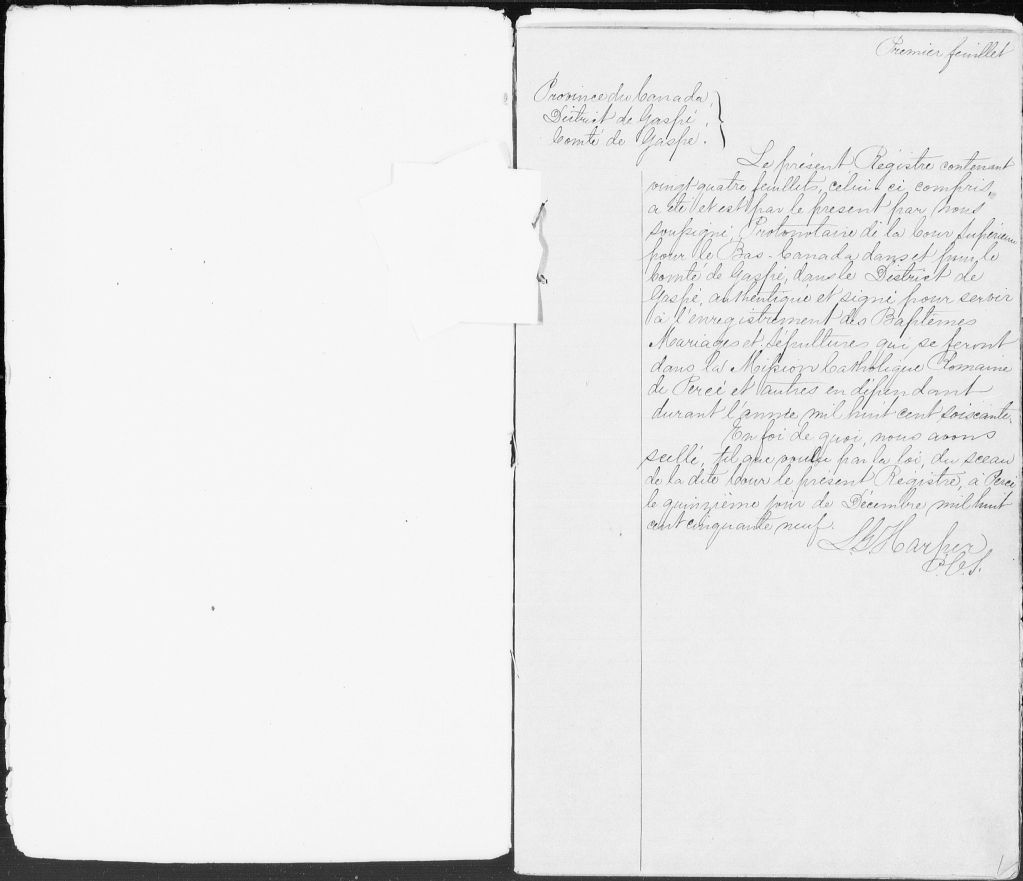 Premier feuillet
Province du Canada,
District de Gaspé
Comté de Gaspé.
Le présent Régistre contenant
vingt quatre feuillets, celui ci compris,
a été et est par le present par nous
soussigné Protonotaire de la Cour Supérieure
pour le Bas-Canada dans et pour le
Comté de Gaspé, dans le District de
Gaspé, authentiqué et signé pour servir
à l'enregistrement des Baptêmes
Mariages et Sépultures qui se feront
dans la Mission Catholique Romaine
de Percé et autres en dépendant
durant l'année mil huit cent soixante.
En foi de quoi, nous avons
scellé, tel que voulu par la loi, du sceau
de la dite Cour le présent Régistre, à Percé
le quinzième jour de Décembre mil huit
cent cinquante neuf.
L G Harper
P.C.S.